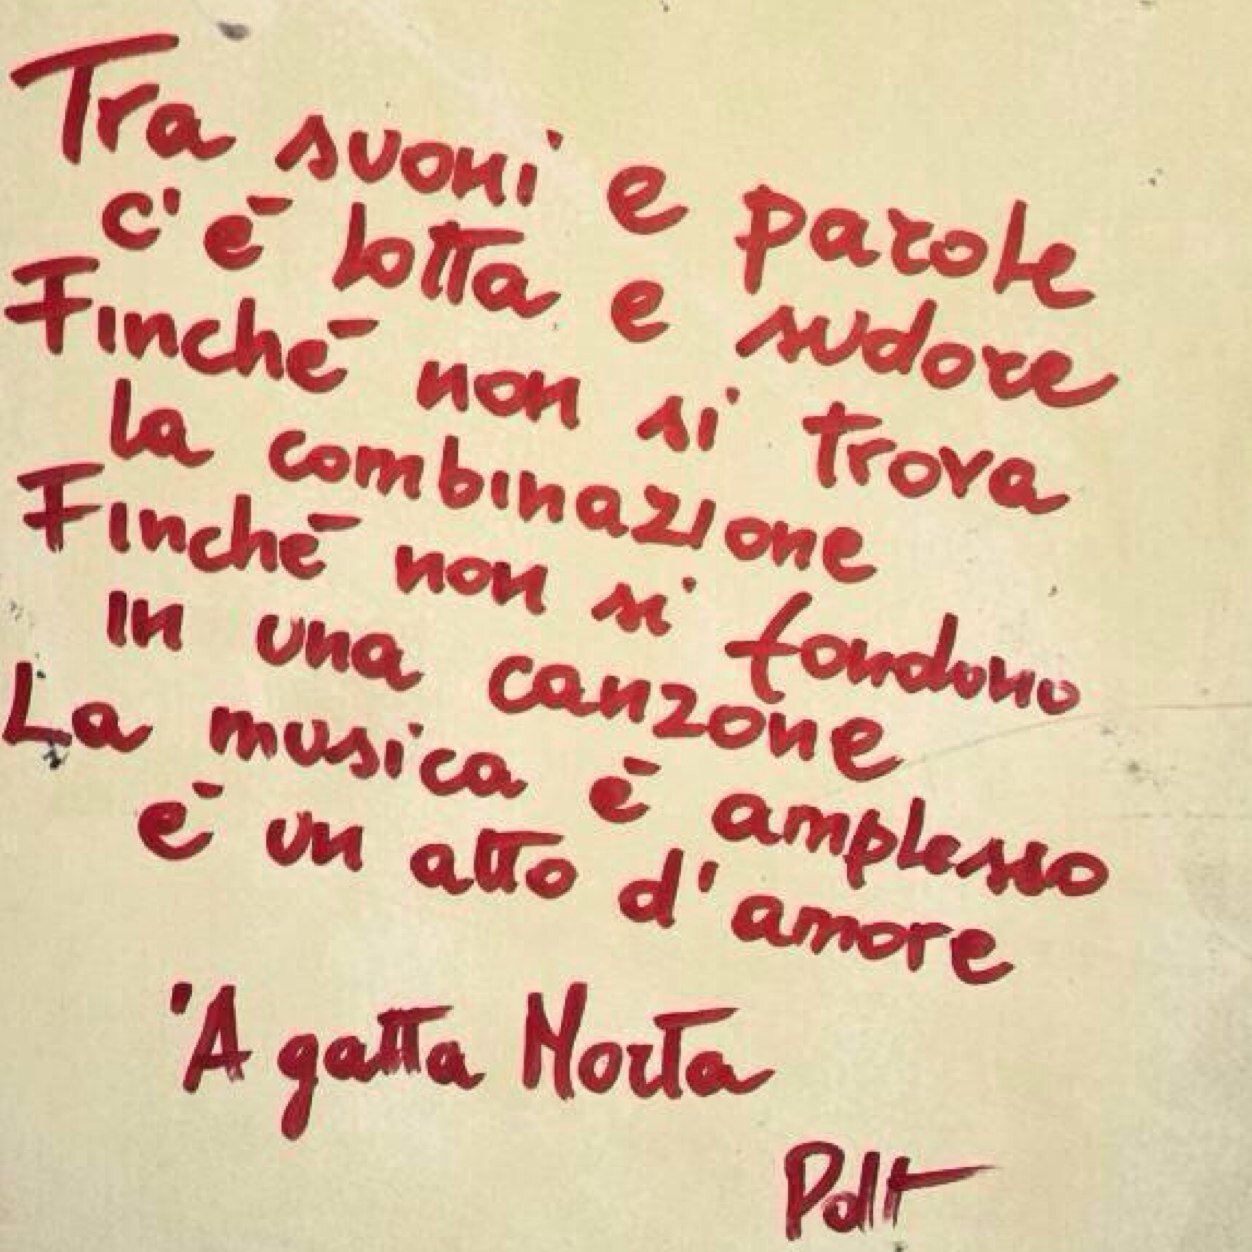 Tra suoni e parole
c'è lotta e sudore
Finchè non si trova
la combinazione
Finchè non si fondono
in una canzone
La musica è amplesso
è un atto d'amore
'A gatta Morta